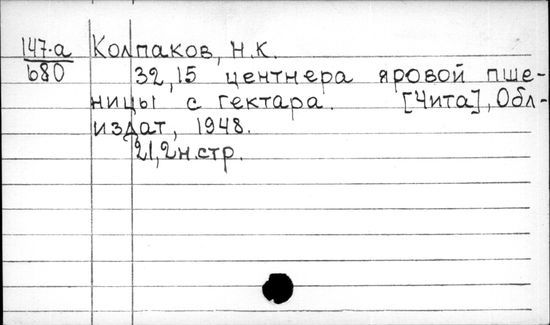 147-а Колпаков, Н.К.
б80 32,15 центнера яровой пше-
ницы с гектара. [Чита], Обл-
издат, 1948.
21,2н.стр.